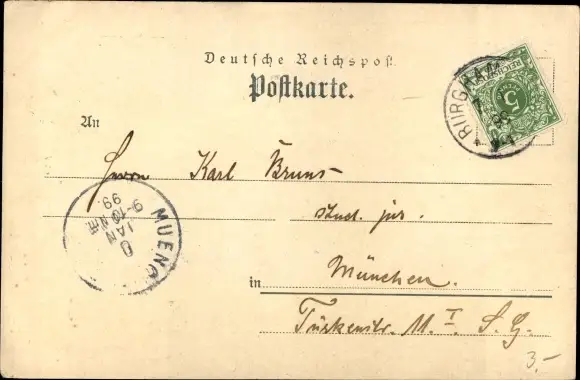 Deutsche Reichspost
Postkarte.
REICHSPOST
5
BURGHA
7
99
An
Herrn Karl Bruns
stud. jur.
MUENC
JAN
9-10 Nm
99.
in München.
Türkenstr. M. I. S. G.
3,-